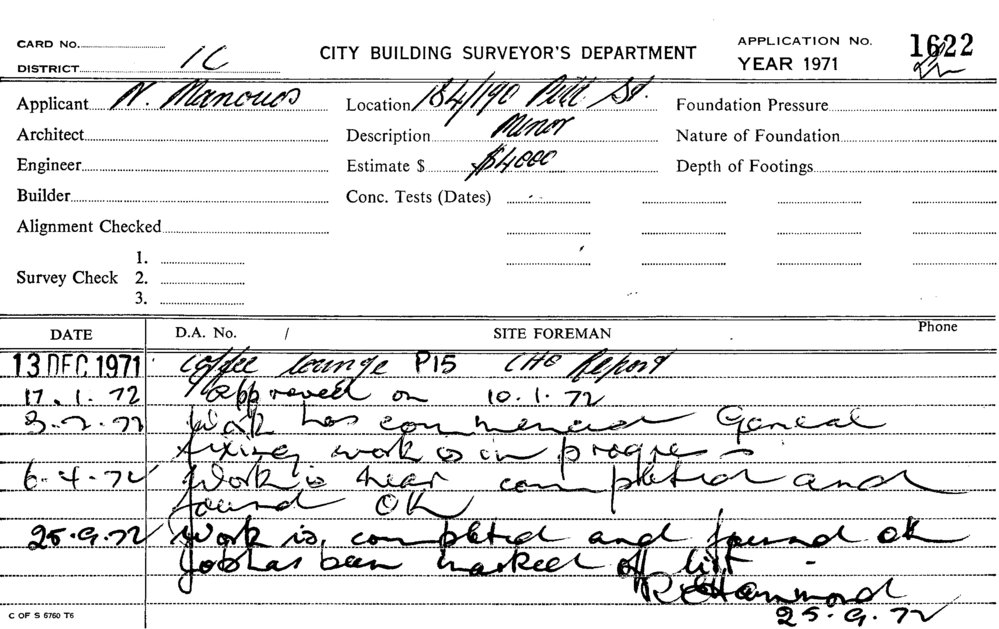 CARD No.
DISTRICT 1C
CITY BUILDING SURVEYOR'S DEPARTMENT
APPLICATION No. 1622
YEAR 1971
Applicant N. Manouos
Location 184/190 Pitt St.
Foundation Pressure
Architect
Description Minor
Nature of Foundation
Engineer
Estimate $ $4000
Depth of Footings
Builder
Conc. Tests (Dates)
Alignment Checked
Survey Check 1.
2.
3.
DATE D.A. No. / SITE FOREMAN Phone
13 DEC 1971 Coffee lounge P15 CHO Report
17.1.72 Approved on 10.1.72
3-2-72 Work has commenced General
fixing work is in progress
6-4-72 Work is near completed and
found OK
25.9.72 Work is completed and found ok
Job has been marked off list -
R Hammond
25.9.72
C OF S 6760 T6